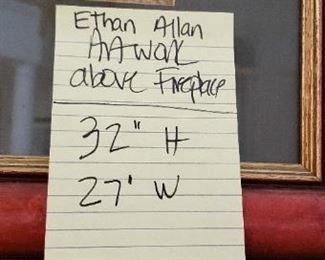 Ethan Allan
Artwork
above Fireplace
32" H
27' W